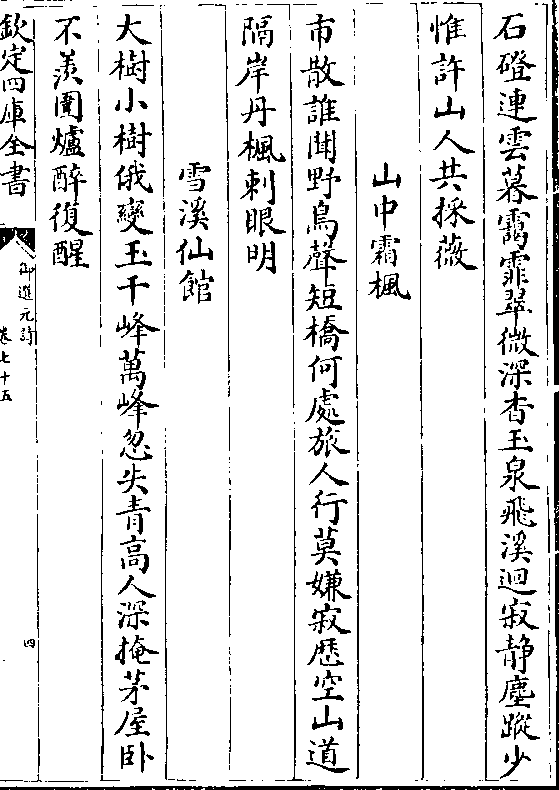 石磴連雲暮靄霏翠微深杳玉泉飛溪迴寂静塵蹤少
惟許山人共採薇
山中霜楓
市散誰聞野鳥聲短橋何處旅人行莫嫌寂歷空山道
隔岸丹楓刺眼明
雪溪仙館
大樹小樹俄變玉千峰萬峰忽失青高人深掩茅屋卧
不羨圍爐醉復醒
欽定四庫全書
御選元詩
卷七十五
四